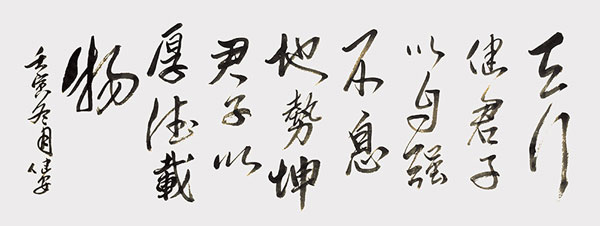 天行
健君子
以自强
不息
地勢坤
君子以
厚德載
物
壬寅冬月